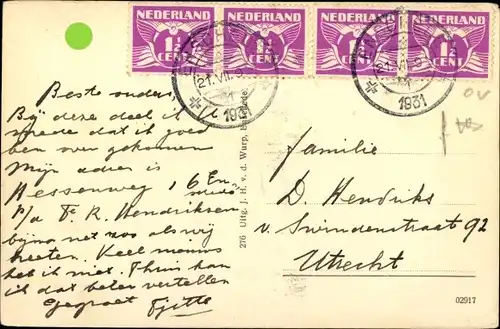 NEDERLAND NEDERLAND NEDERLAND NEDERLAND
1½ CENT 1½ CENT 1½ CENT 1½ CENT
21.VII
1931
1931
Beste ouders,
Bij deze deel ik
mede dat ik goed
ben over gekomen
Mijn adres is
Hessenweg, 6
p/a Fr R. Hendriksen
bijna net zoo als wij
heeten. Veel nieuws
heb ik niet. Thuis kan
ik dat beter vertellen
Gegroet
276 Uitg. J. H. v. d. Wurp,
OV
Familie
D. Hendriks
v. Swindenstraat 92
Utrecht
02917